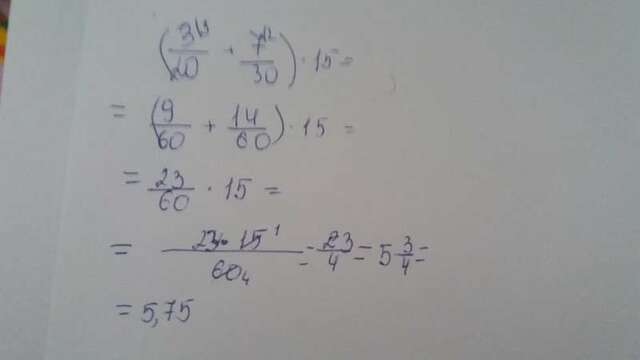 (3/20 + 7/30) · 15 =
= (9/60 + 14/60) · 15 =
= 23/60 · 15 =
= 23 · 15 1/60 4 = 23/4 = 5 3/4 =
= 5,75